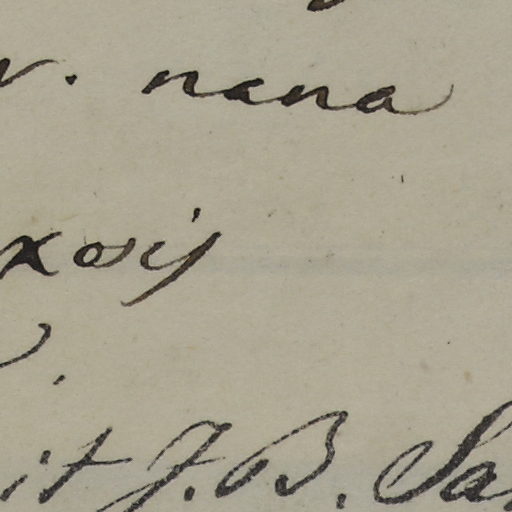 v. nana
xorij
it J. B. Sa